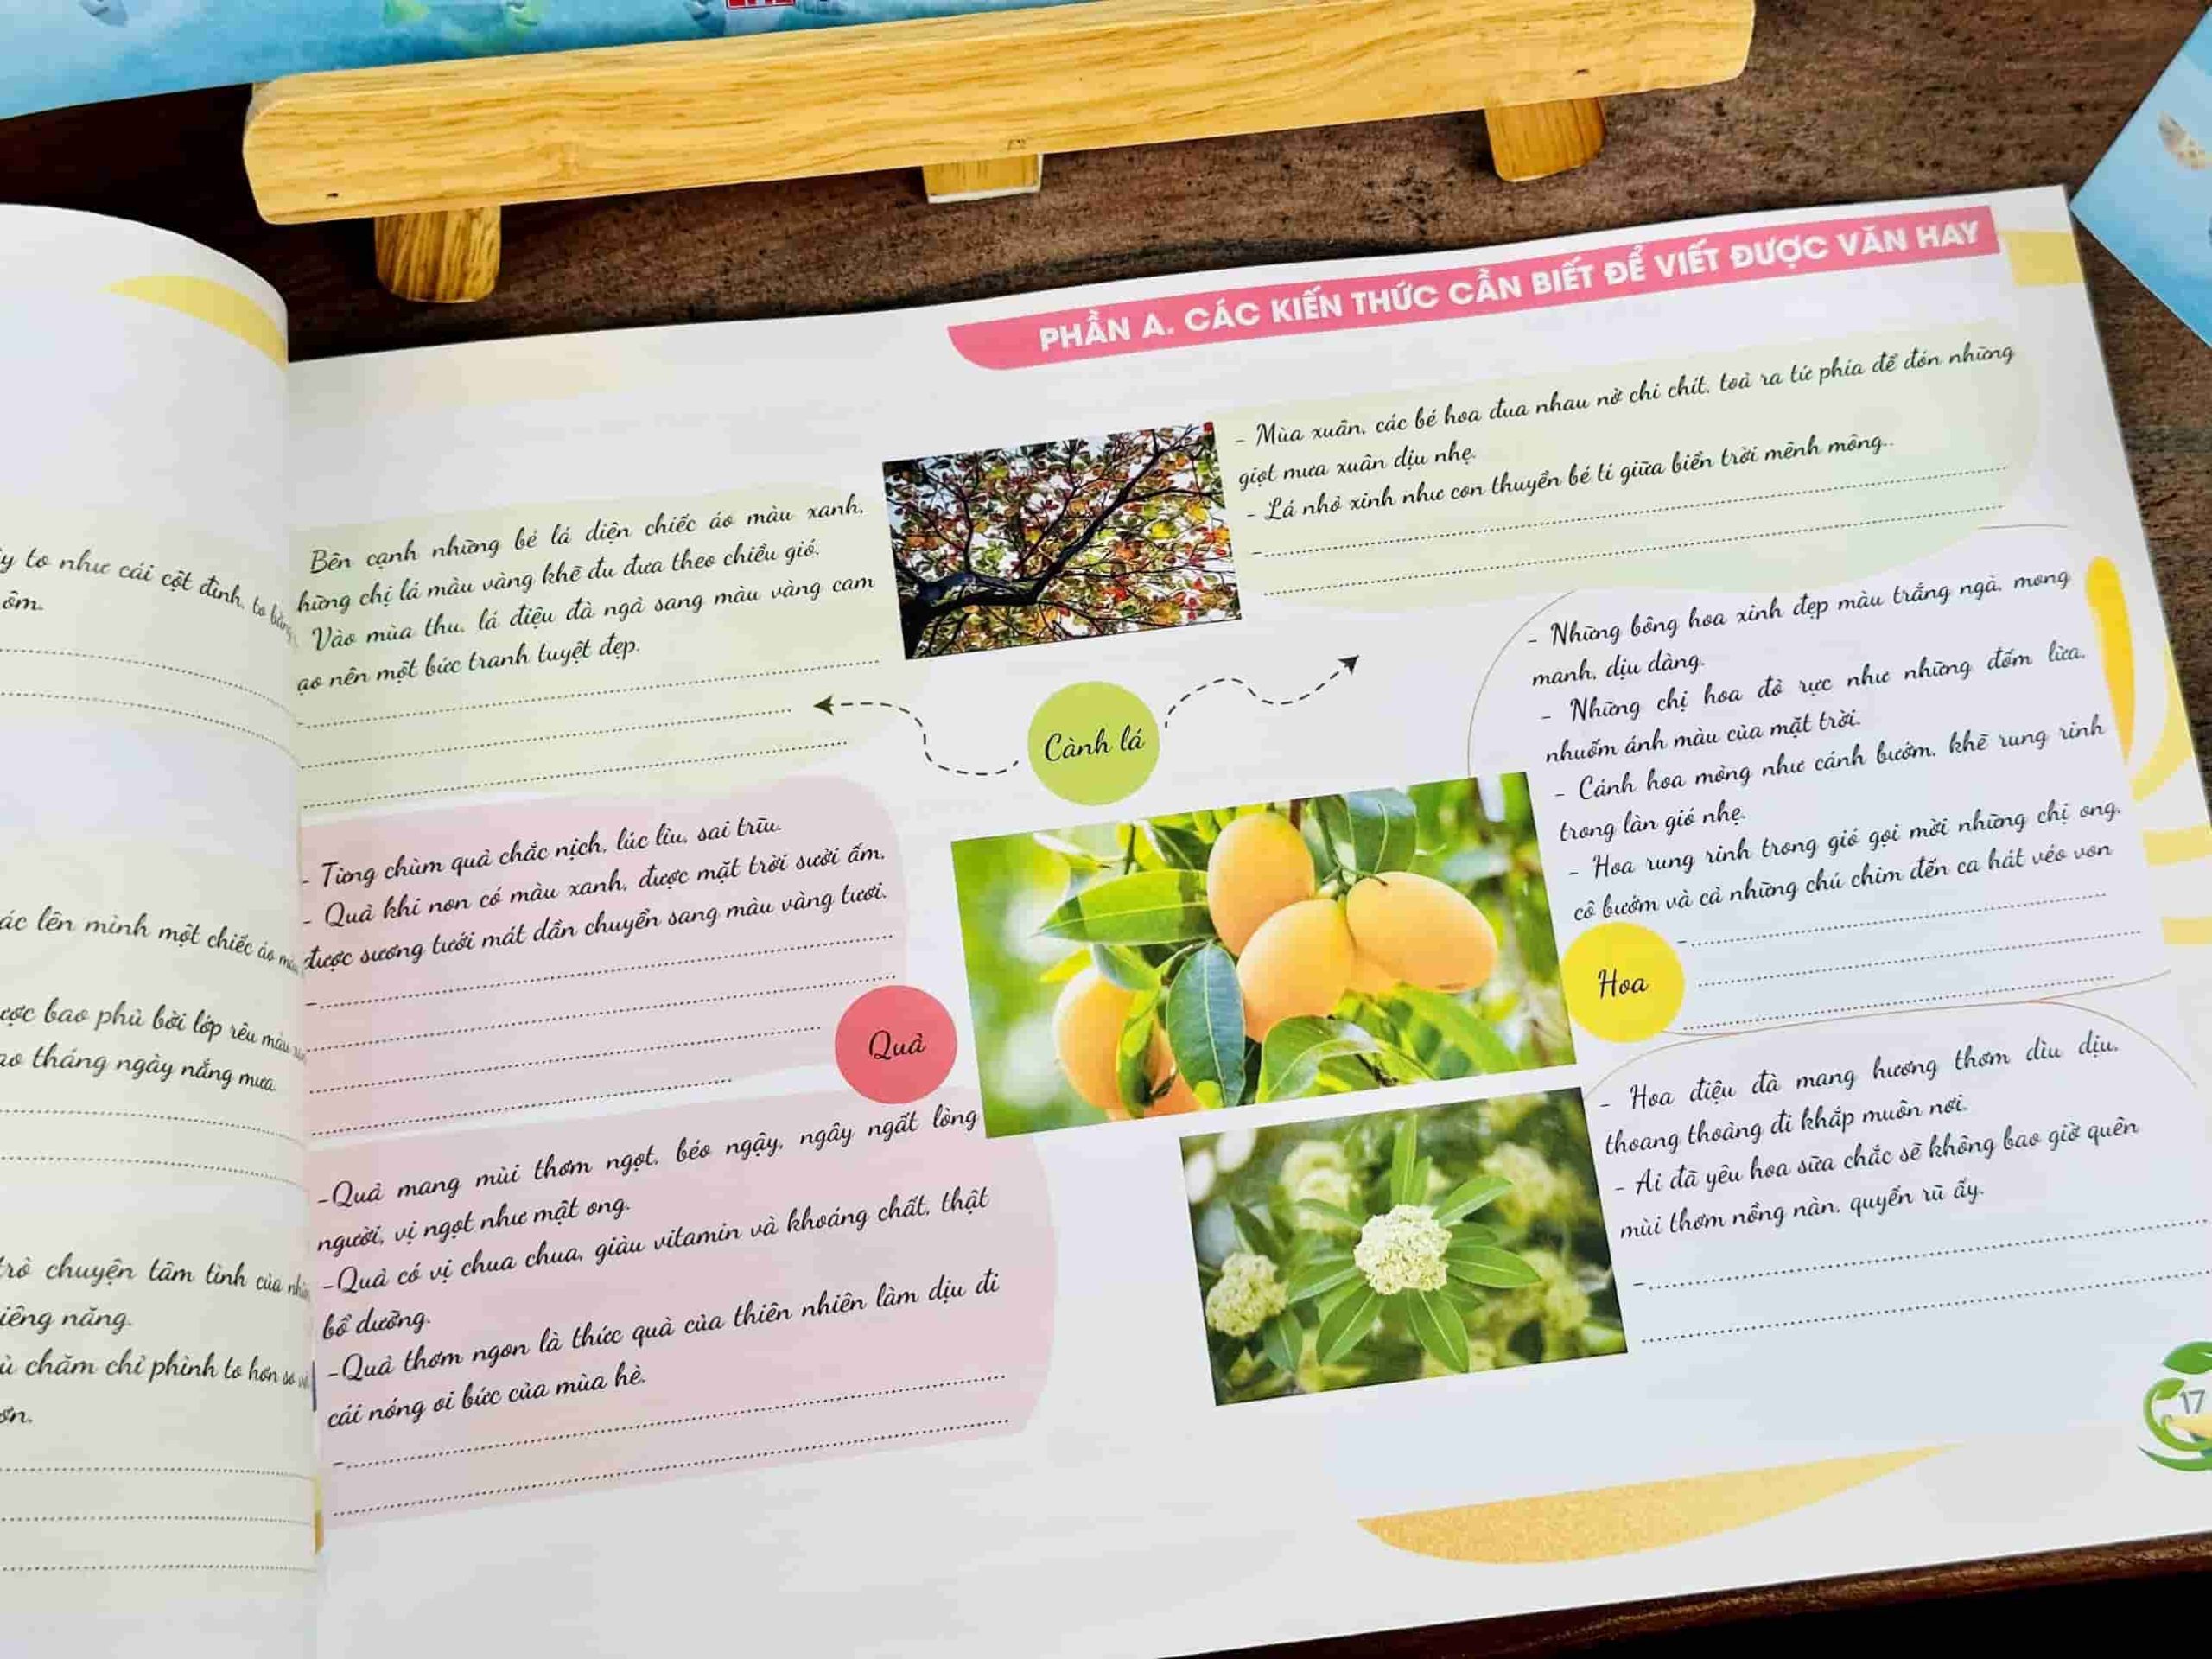 PHẦN A. CÁC KIẾN THỨC CẦN BIẾT ĐỂ VIẾT ĐƯỢC VĂN HAY
to như cái cột đình, to
ôm.
lên mình một chiếc áo
bao phủ bởi lớp rêu màu
tháng ngày nắng mưa.
chuyện tâm tình của
năng.
chăm chỉ phình to hơn so
Bên cạnh những bé lá diện chiếc áo màu xanh,
chị lá màu vàng khẽ đu đưa theo chiều gió.
Vào mùa thu, lá điệu đà ngả sang màu vàng cam
nên một bức tranh tuyệt đẹp.
- Mùa xuân, các bé hoa đua nhau nở chi chít, toả ra tứ phía để đón những
giọt mưa xuân dịu nhẹ.
- Lá nhỏ xinh như con thuyền bé tí giữa biển trời mênh mông..
Cành lá
- Từng chùm quả chắc nịch, lúc lỉu, sai trĩu.
- Quả khi non có màu xanh, được mặt trời sưởi ấm,
được sương tưới mát dần chuyển sang màu vàng tươi.
Quả
-Quả mang mùi thơm ngọt, béo ngậy, ngây ngất lòng
người, vị ngọt như mật ong.
-Quả có vị chua chua, giàu vitamin và khoáng chất, thật
bổ dưỡng.
-Quả thơm ngon là thức quà của thiên nhiên làm dịu đi
cái nóng oi bức của mùa hè.
- Những bông hoa xinh đẹp màu trắng ngà, mong
manh, dịu dàng.
- Những chị hoa đỏ rực như những đốm lửa,
nhuốm ánh màu của mặt trời.
- Cánh hoa mỏng như cánh bướm, khẽ rung rinh
trong làn gió nhẹ.
- Hoa rung rinh trong gió gọi mời những chị ong,
cô bướm và cả những chú chim đến ca hát véo von
Hoa
- Hoa điệu đà mang hương thơm dìu dịu,
thoang thoảng đi khắp muôn nơi.
- Ai đã yêu hoa sữa chắc sẽ không bao giờ quên
mùi thơm nồng nàn, quyến rũ ấy.
17